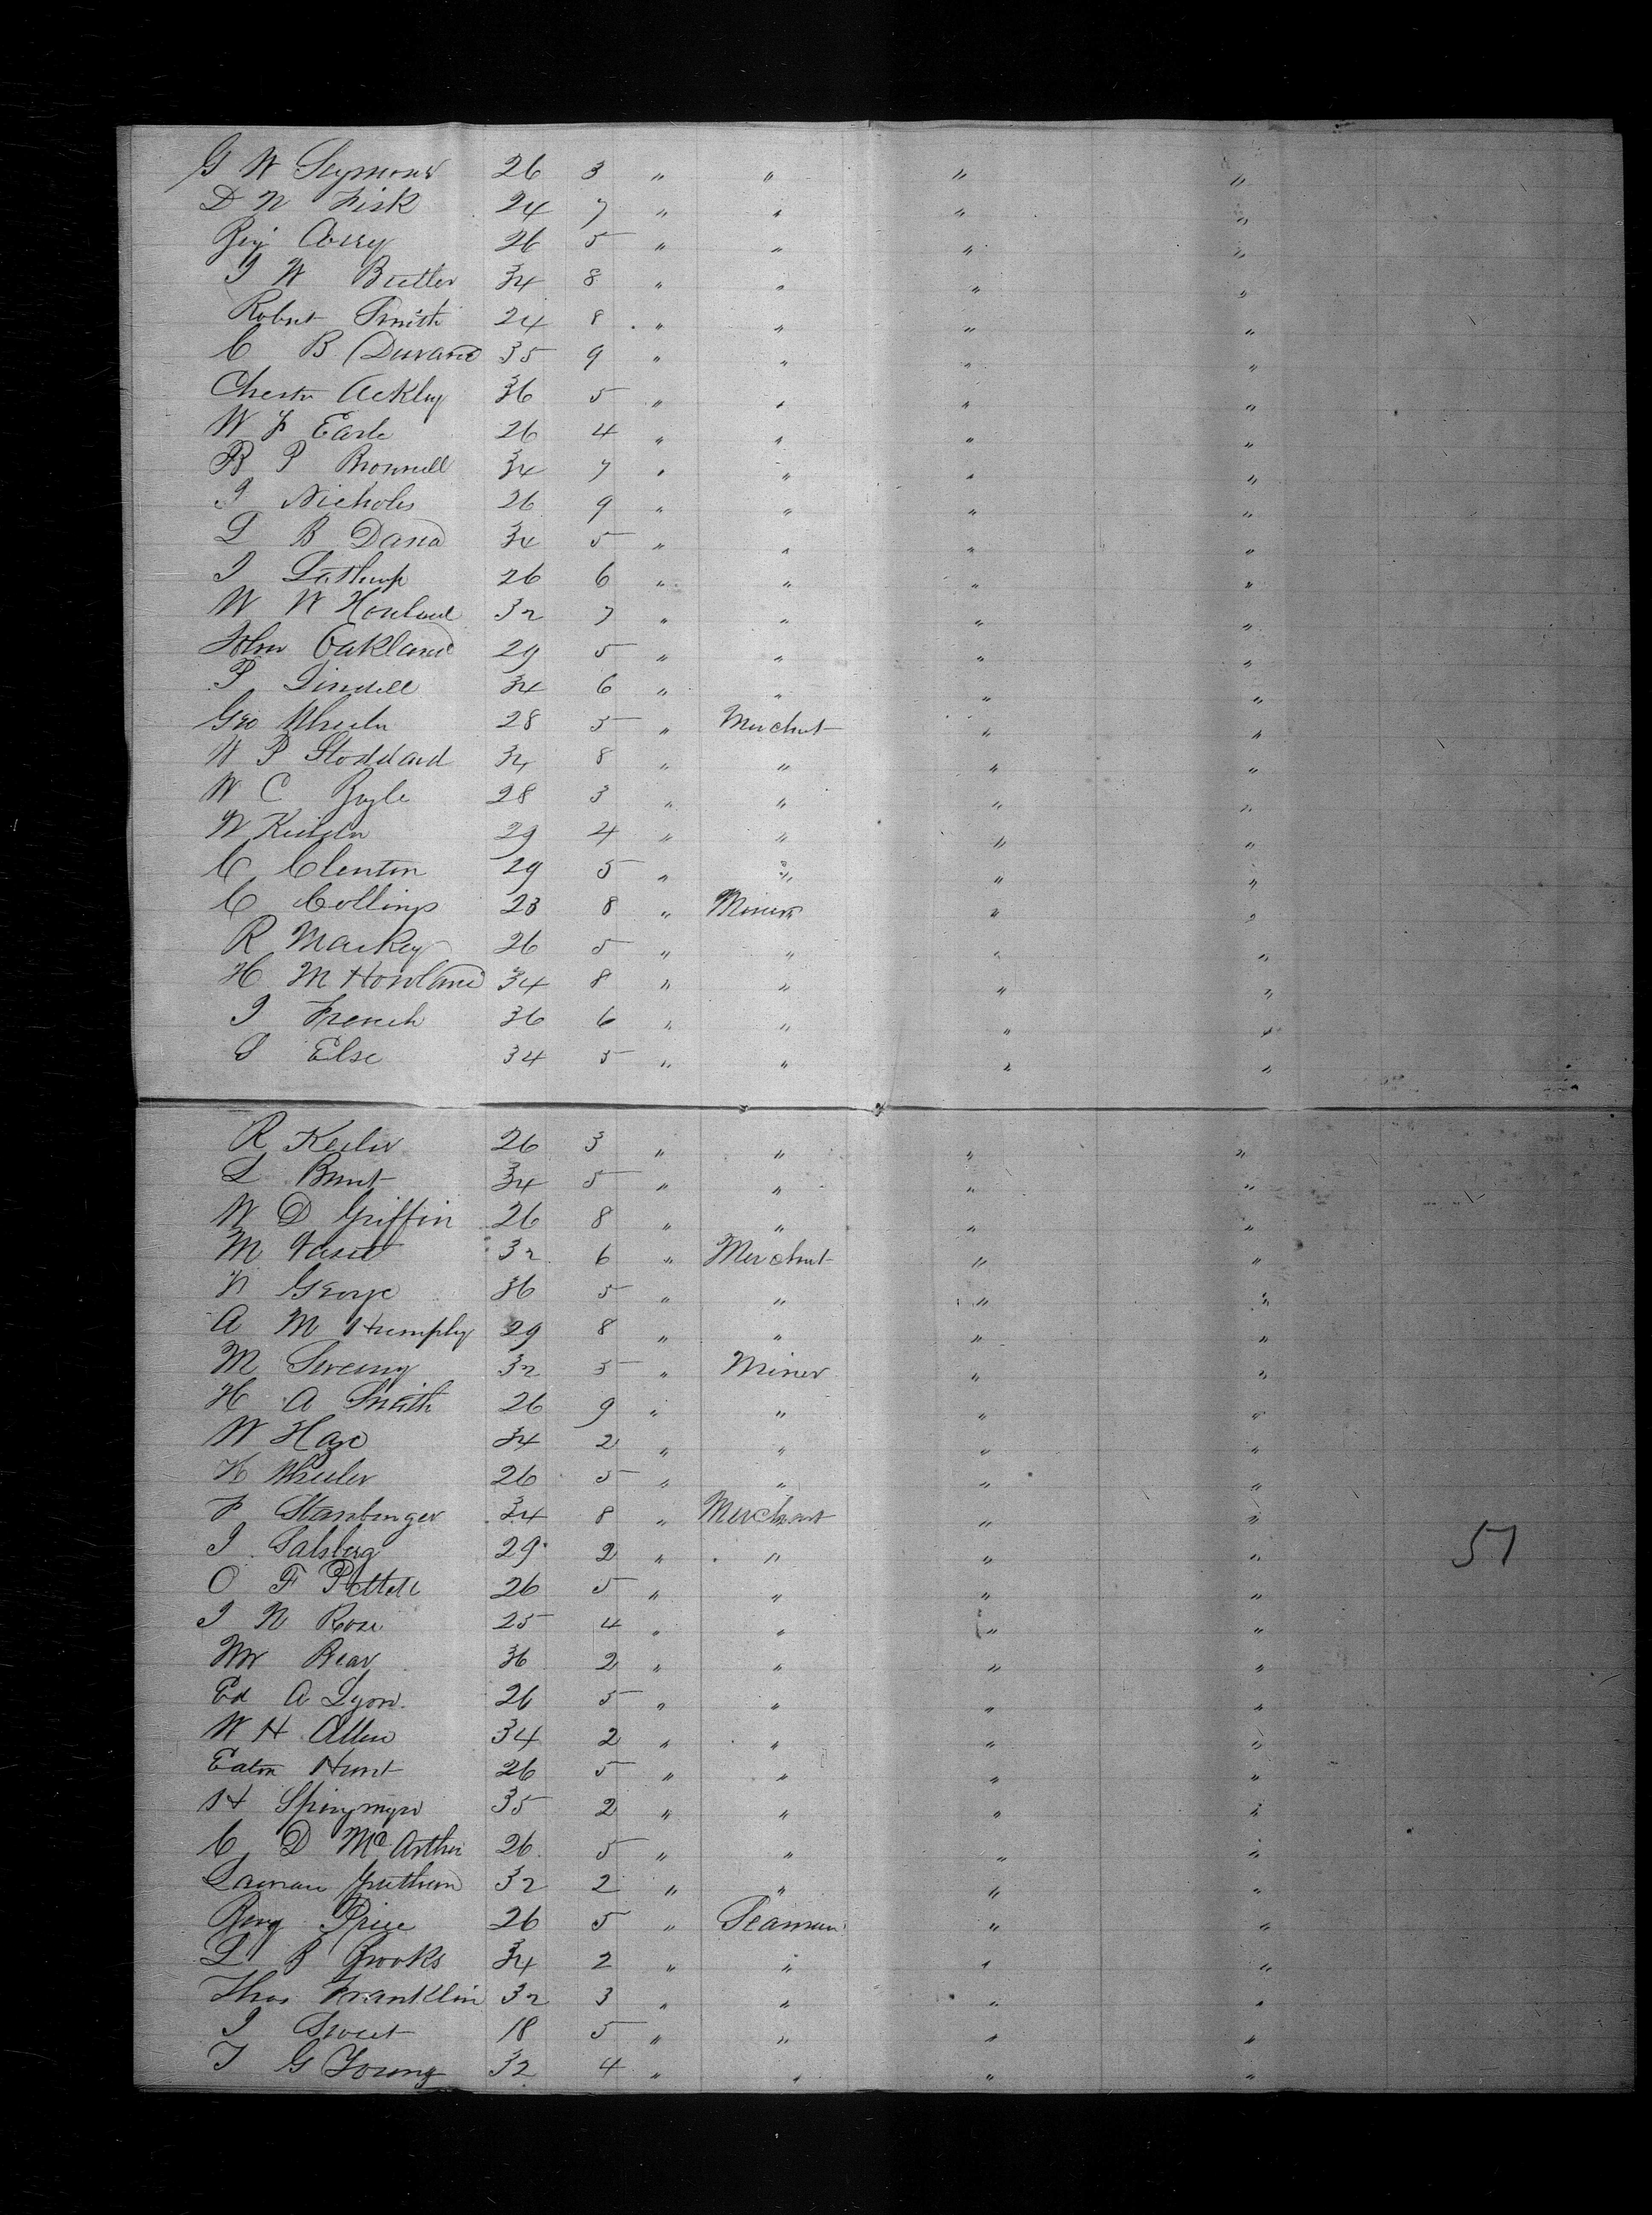 G W Seymour 26 3 " " " "
D N Fisk 24 7 " " " "
Benj Avery 26 5 " " " "
J W Butler 34 8 " " " "
Robert Smith 24 8 " " " "
C B Durand 35 9 " " " "
Chester Ackley 36 5 " " " "
W F Earle 26 4 " " " "
B P Bronnell 34 7 " " " "
J Nicholes 26 9 " " " "
L B Dana 34 5 " " " "
J Lathrop 26 6 " " " "
W W Howland 32 7 " " " "
John Oakland 29 5 " " " "
P Lindell 34 6 " " " "
Geo Wheeler 28 5 " Merchant " "
W P Stoddard 34 8 " " " "
W C 28 3 " " " "
W 29 4 " " " "
C Clenton 29 5 " " " "
C Collings 28 8 " Miners " "
R Mackey 26 5 " " " "
H M Howland 34 8 " " " "
J French 36 6 " " " "
S Else 34 5 " " " "
R Keeler 26 3 " " " "
L Brunt 34 5 " " " "
W D Griffin 26 8 " " " "
M 32 6 " Merchant " "
N George 36 5 " " " "
A M Humphy 29 8 " " " "
M Sweeny 32 5 " Miner " "
H A Smith 26 9 " " " "
W Haze 34 2 " " " "
H Wheeler 26 5 " " " "
F Stanbinger 34 8 " Merchant " "
J Salsberg 29 2 " " " "
O F 26 5 " " " "
J N Rose 25 4 " " " "
Wm Bear 36 2 " " " "
Ed A Lyon 26 5 " " " "
W H Allen 34 2 " " " "
Eaton Hunt 26 5 " " " "
H 35 2 " " " "
C D McArthur 26 5 " " " "
32 2 " " " "
Benj Price 26 5 " Seaman " "
L B Brooks 34 2 " " " "
Thos Franklin 32 3 " " " "
J Sweet 18 5 " " " "
T G Young 32 4 " " " "
51